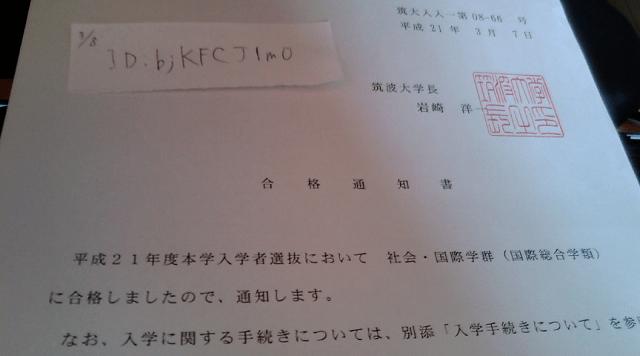 筑大入入一第08-66 号
平成 21 年 3 月 7 日
3/8
ID:bjKFCJ1m0
筑波大学長
岩崎 洋一
合 格 通 知 書
平成21年度本学入学者選抜において 社会・国際学群(国際総合学類)
に合格しましたので、通知します。
なお、入学に関する手続きについては、別添「入学手続きについて」を参